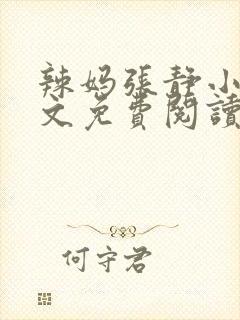 辣妈張静小
文免費閱讀
何守君